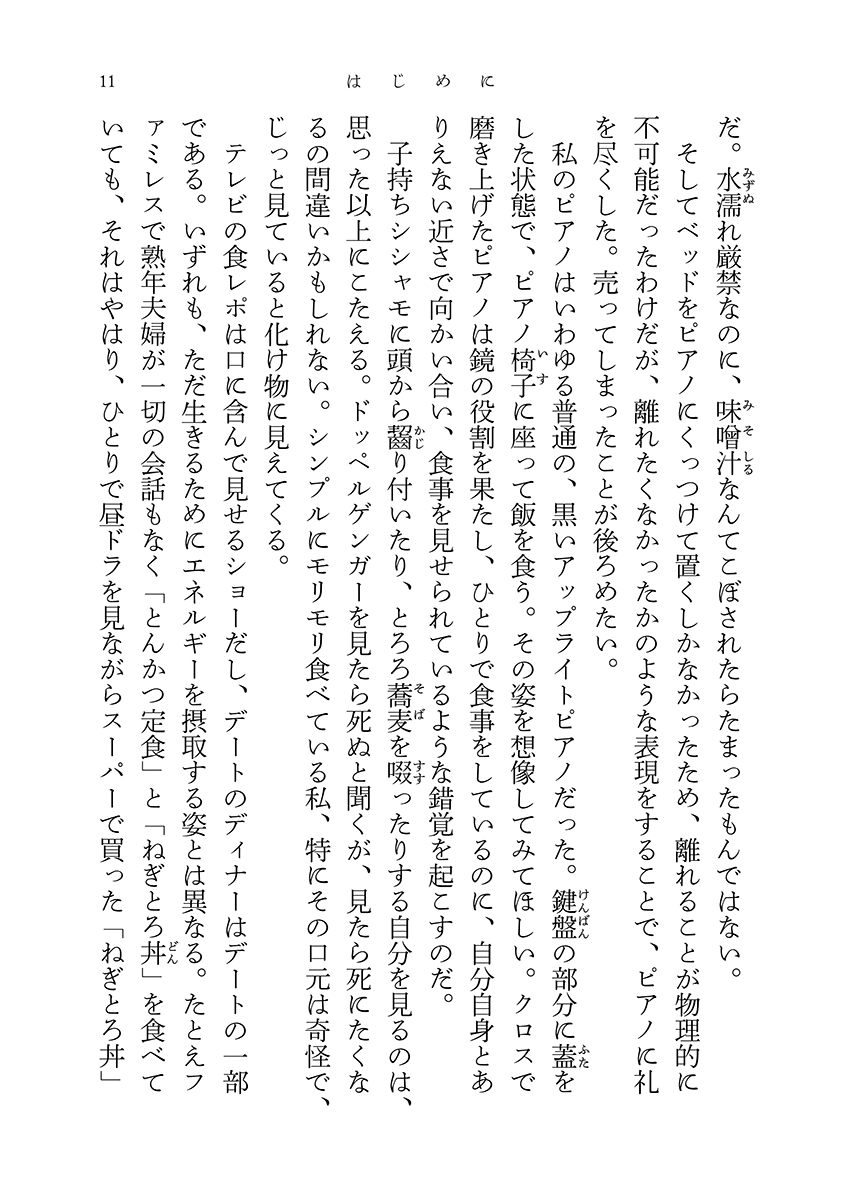 11
はじめに
だ。水濡れ厳禁なのに、味噌汁なんてこぼされたらたまったもんではない。
そしてベッドをピアノにくっつけて置くしかなかったため、離れることが物理的に
不可能だったわけだが、離れたくなかったかのような表現をすることで、ピアノに礼
を尽くした。売ってしまったことが後ろめたい。
私のピアノはいわゆる普通の、黒いアップライトピアノだった。鍵盤の部分に蓋を
した状態で、ピアノ椅子に座って飯を食う。その姿を想像してみてほしい。クロスで
磨き上げたピアノは鏡の役割を果たし、ひとりで食事をしているのに、自分自身とあ
りえない近さで向かい合い、食事を見せられているような錯覚を起こすのだ。
子持ちシシャモに頭から齧り付いたり、とろろ蕎麦を啜ったりする自分を見るのは、
思った以上にこたえる。ドッペルゲンガーを見たら死ぬと聞くが、見たら死にたくな
るの間違いかもしれない。シンプルにモリモリ食べている私、特にその口元は奇怪で、
じっと見ていると化け物に見えてくる。
テレビの食レポは口に含んで見せるショーだし、デートのディナーはデートの一部
である。いずれも、ただ生きるためにエネルギーを摂取する姿とは異なる。たとえフ
ァミレスで熟年夫婦が一切の会話もなく「とんかつ定食」と「ねぎとろ丼」を食べて
いても、それはやはり、ひとりで昼ドラを見ながらスーパーで買った「ねぎとろ丼」